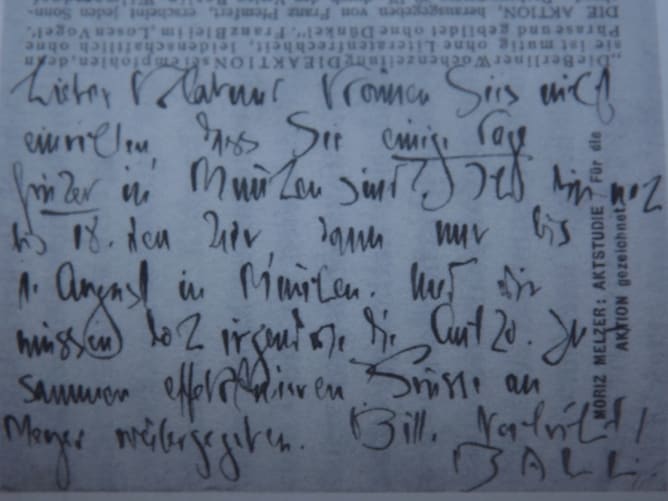 Lieber Klabund! Können Sies nicht
einrichten dass Sie einige Tage
früher in München sind? Ich bin noch
bis 18. den hier dann nur bis
1. August in München. Und wir
müssen doch irgendwie die zu
sammen Grüsse an
Meyer weitergegeben. Bitte Nachricht!
BALL.
MORIZ MELZER: AKTSTUDIE / Für die
AKTION gezeichnet
„Die Berliner Wochenzeitung DIE AKTION sei empfohlen, denn
sie ist mutig ohne Literatenfrechheit, leidenschaftlich ohne
Phrase und gebildet ohne Dünkel“. Franz Blei im „Losen Vogel“.
DIE AKTION, herausgegeben von Franz Pfemfert, erscheint jeden Sonn-